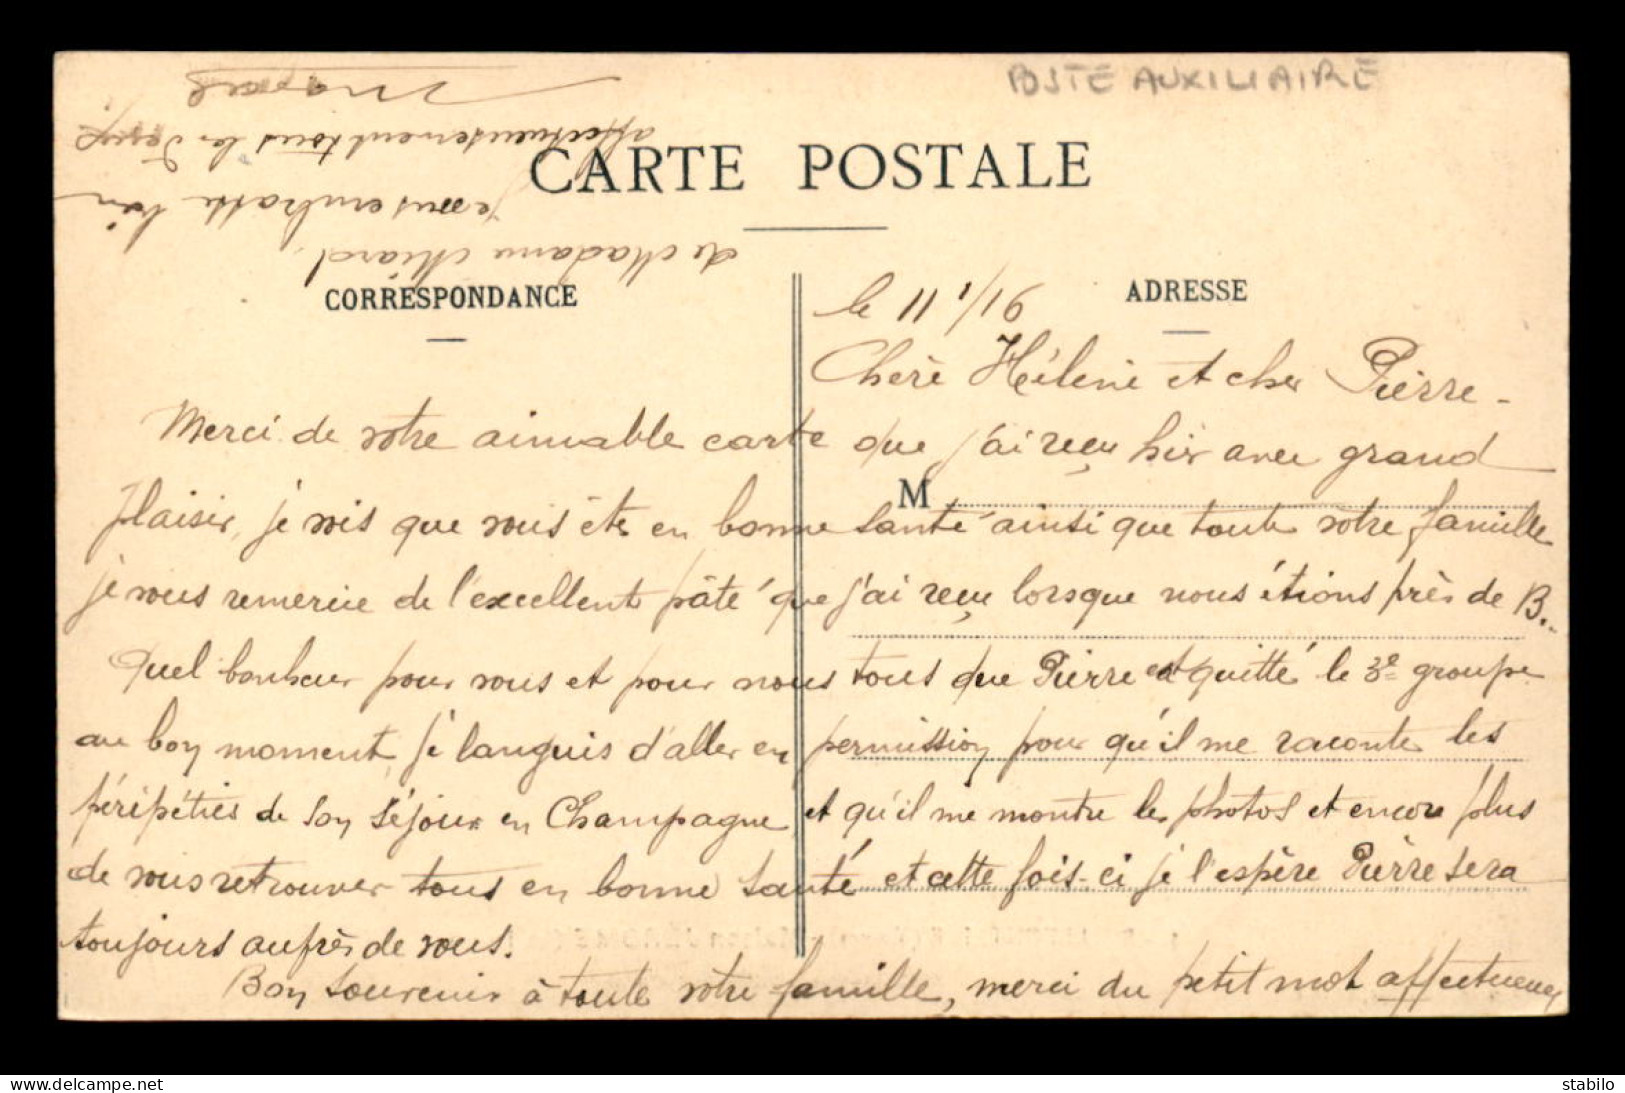 POSTE AUXILIAIRE
CARTE POSTALE
CORRESPONDANCE
ADRESSE
M
le 11 1/16
Chère Hélène et cher Pierre -
Merci de votre aimable carte que j'ai reçu hier avec grand
plaisir, je vois que vous êtes en bonne santé ainsi que toute votre famille
je vous remercie de l'excellent pâté que j'ai reçu lorsque nous étions près de B..
Quel bonheur pour vous et pour nous tous que Pierre ait quitté le 3e groupe
au bon moment, je languis d'aller en permission pour qu'il me raconte les
péripéties de son séjour en Champagne et qu'il me montre les photos et encore plus
de vous retrouver tous en bonne santé et cette fois-ci je l'espère Pierre sera
toujours auprès de vous.
Bon souvenir à toute votre famille, merci du petit mot affectueux
de Madame Miard,
je vous embrasse bien
affectueusement tous les deux
Marcel
www.delcampe.net
stabilo